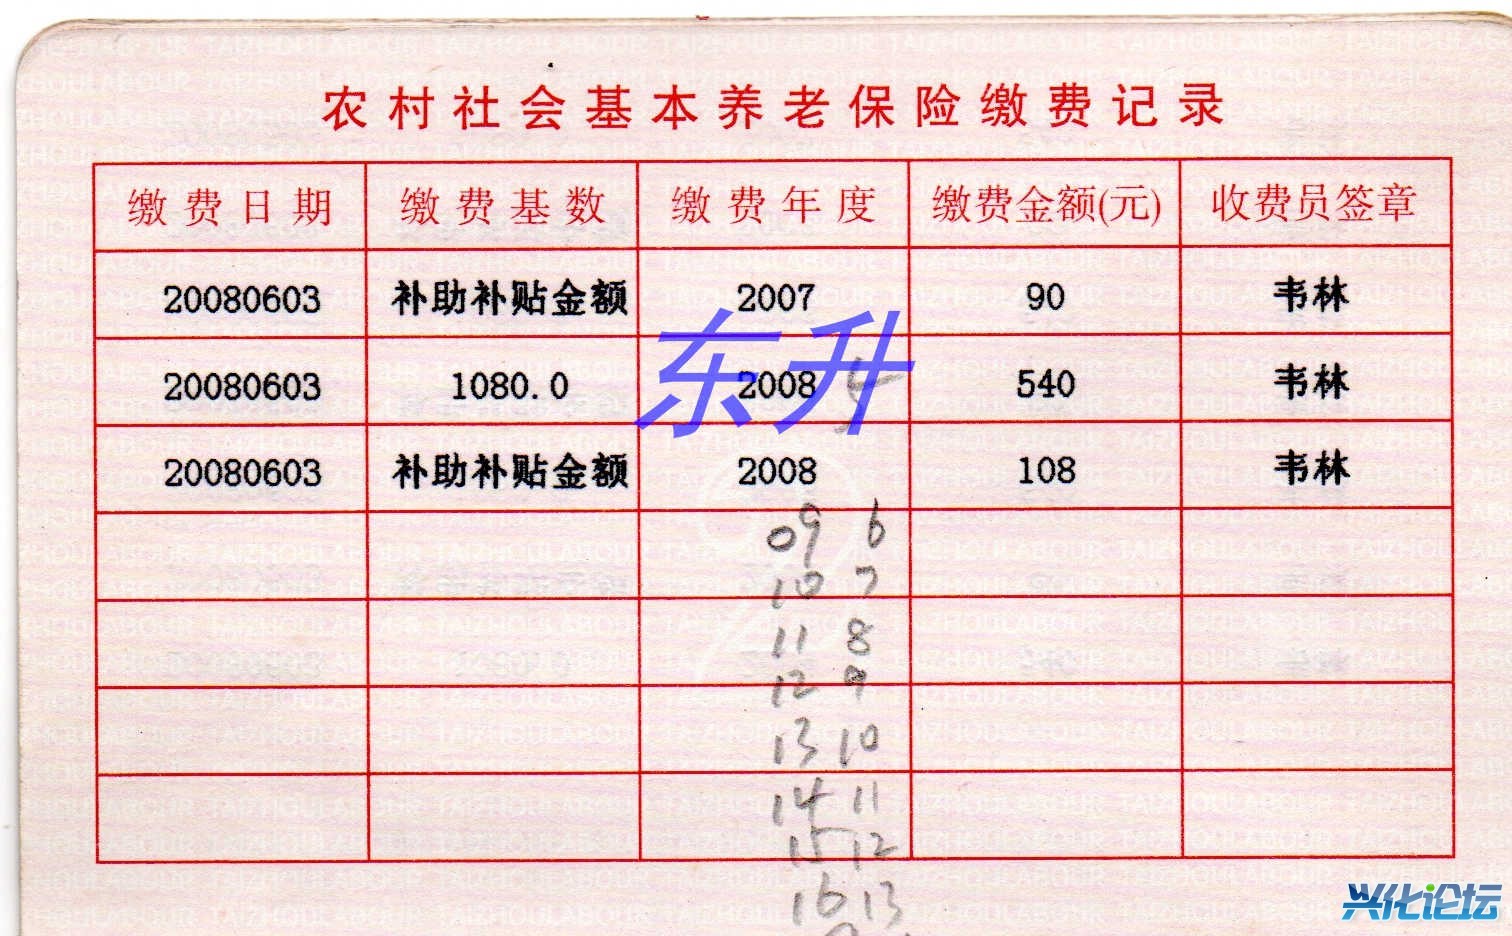 农村社会基本养老保险缴费记录
缴费日期 缴费基数 缴费年度 缴费金额(元) 收费员签章
20080603 补助补贴金额 2007 90 韦林
东升
20080603 1080.0 2008 5 540 韦林
20080603 补助补贴金额 2008 108 韦林
09 6
10 7
11 8
12 9
13 10
14 11
15 12
16 13
兴化论坛